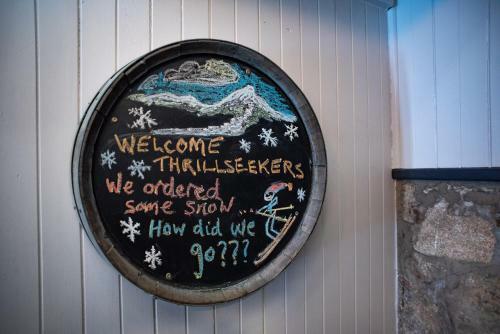 WELCOME
THRILLSEEKERS
We ordered
some snow...
How did we
go???